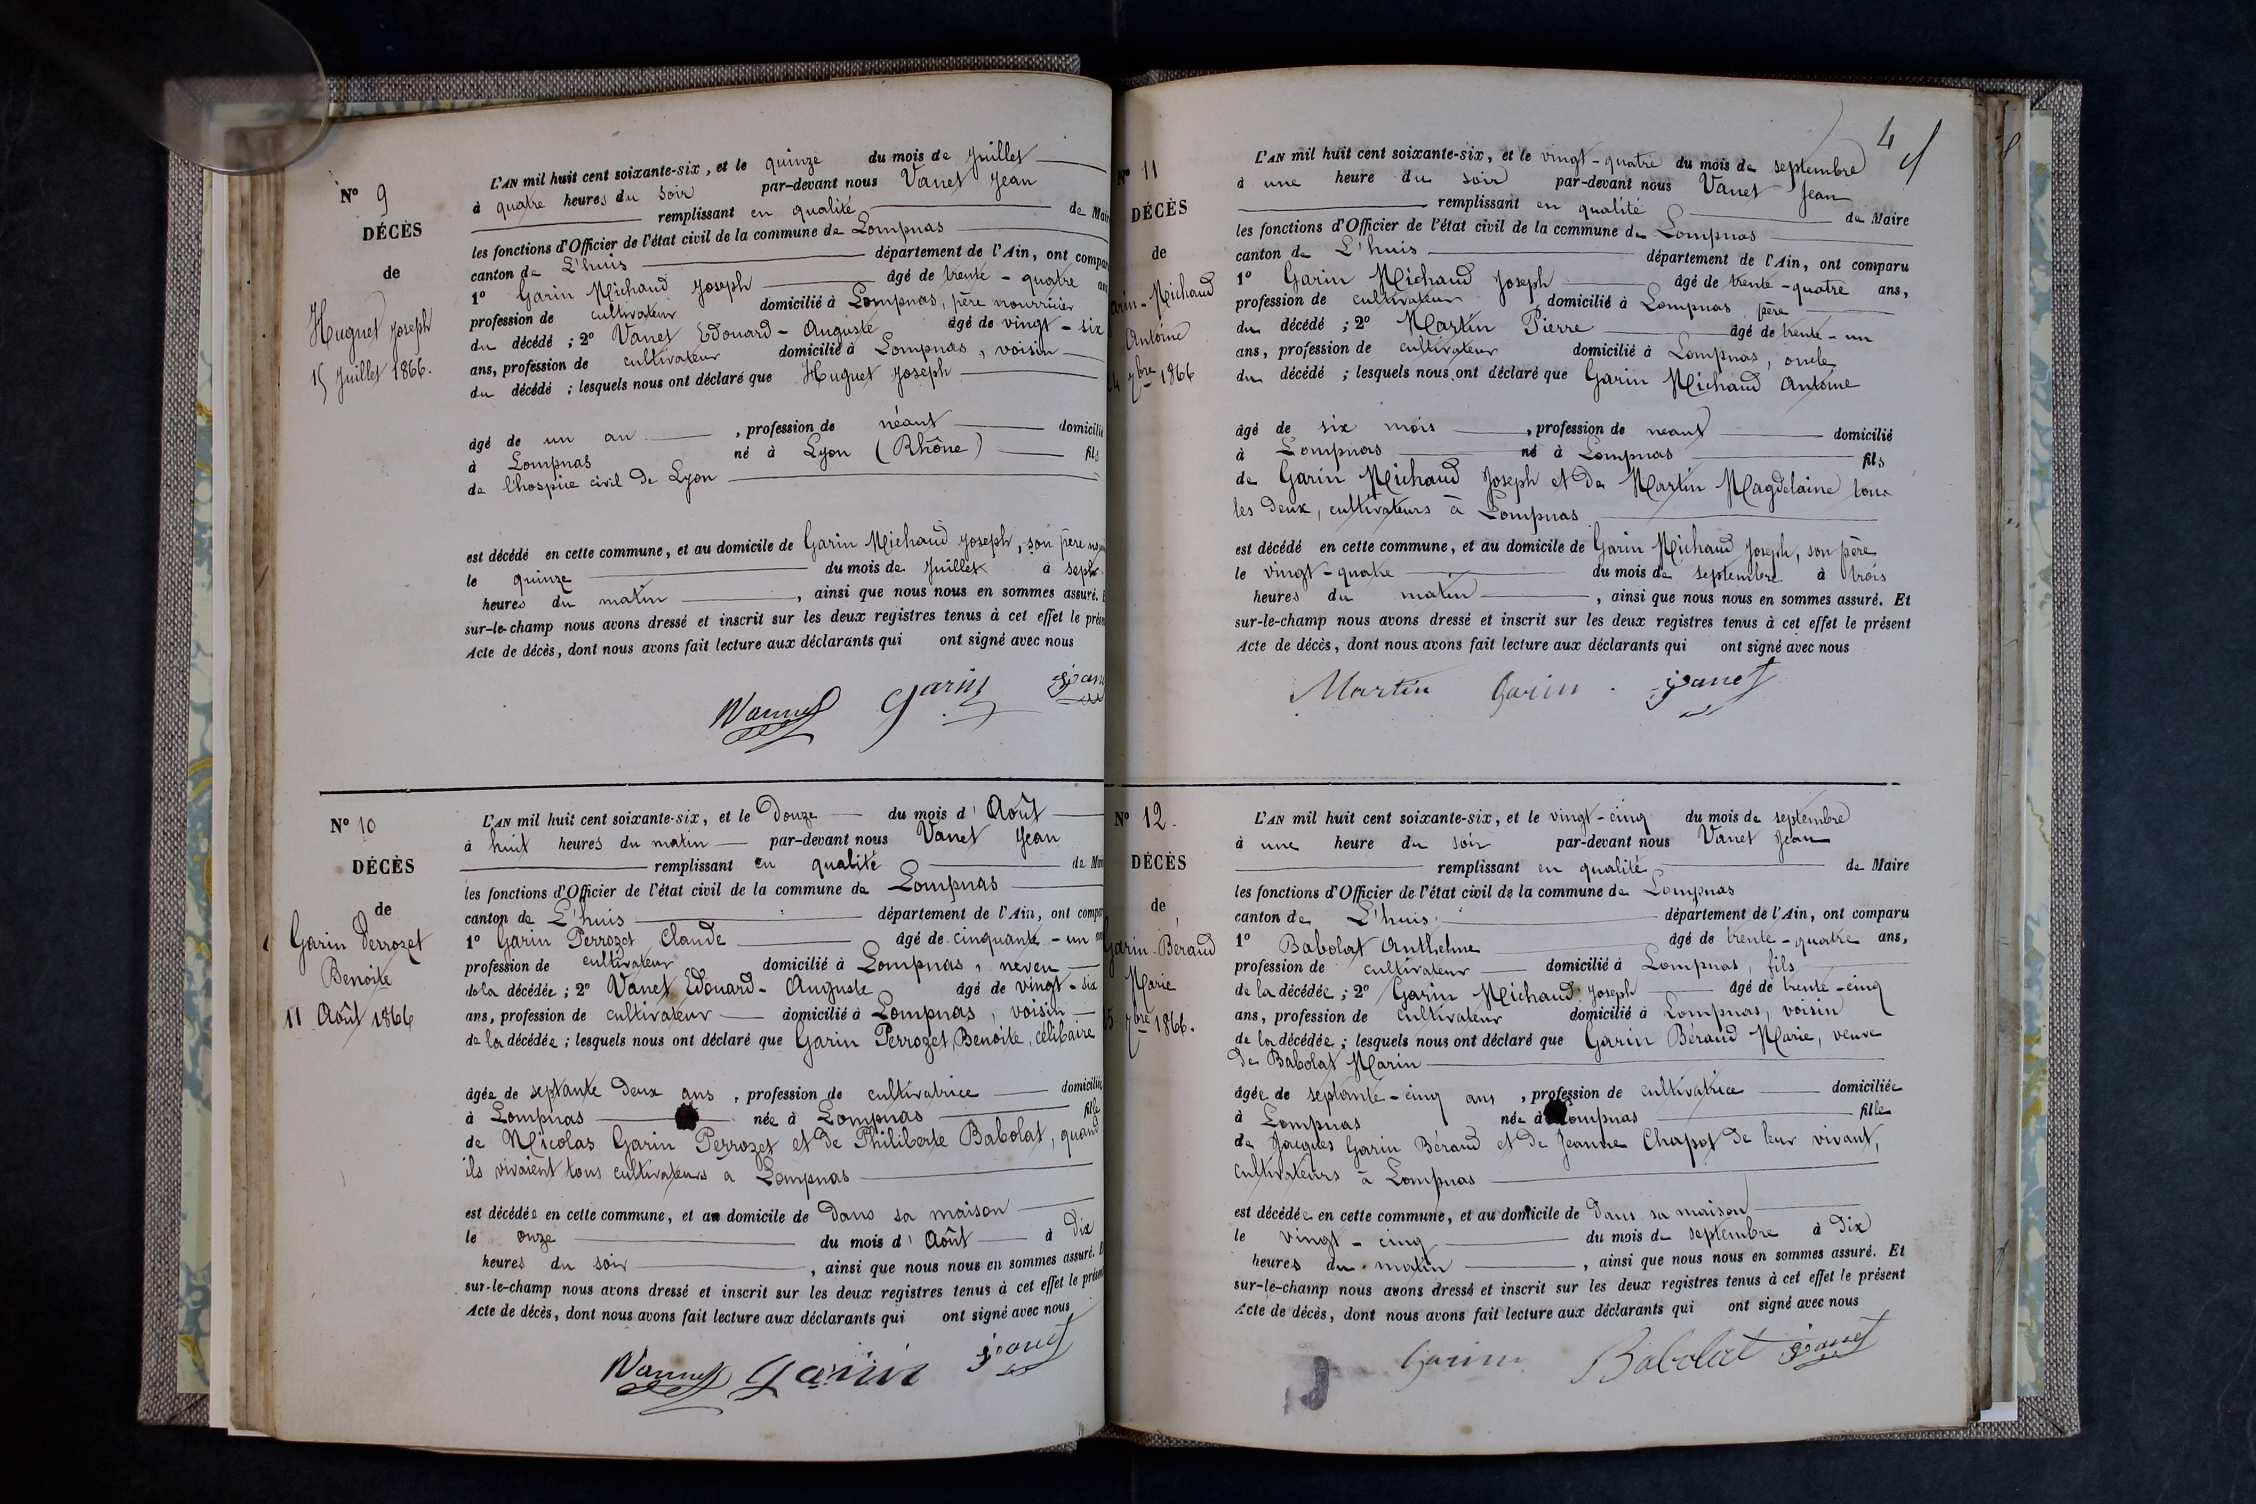 N° 9
DÉCÈS
de
Huguet Joseph
15 Juillet 1866.
L'AN mil huit cent soixante-six, et le quinze du mois de Juillet
à quatre heures du soir par-devant nous Vanet Jean
remplissant en qualité de Mai
les fonctions d'Officier de l'état civil de la commune de Lompnas
canton de L'huis département de l'Ain, ont compar
1° Garin Michaud Joseph âgé de trente-quatre an
profession de cultivateur domicilié à Lompnas, père nourricier
du décédé ; 2° Vanet Edouard-Auguste âgé de vingt-six
ans, profession de cultivateur domicilié à Lompnas, voisin
du décédé ; lesquels nous ont déclaré que Huguet Joseph
âgé de un an, profession de néant domicilié
à Lompnas né à Lyon (Rhône) fils
de l'hospice civil de Lyon
est décédé en cette commune, et au domicile de Garin Michaud Joseph, son père
le quinze du mois de Juillet à sept
heures du matin, ainsi que nous nous en sommes assuré. E
sur-le-champ nous avons dressé et inscrit sur les deux registres tenus à cet effet le prése
Acte de décès, dont nous avons fait lecture aux déclarants qui ont signé avec nous
Vannet Garin Vane
N° 10
DÉCÈS
de
Garin Perrozet
Benoite
11 Août 1866
L'AN mil huit cent soixante-six, et le Douze du mois d'Août
à huit heures du matin par-devant nous Vanet Jean
remplissant en qualité de Mai
les fonctions d'Officier de l'état civil de la commune de Lompnas
canton de L'huis département de l'Ain, ont compar
1° Garin Perrozet Claude âgé de cinquante-un an
profession de cultivateur domicilié à Lompnas, neveu
de la décédée ; 2° Vanet Edouard-Auguste âgé de vingt-six
ans, profession de cultivateur domicilié à Lompnas, voisin
de la décédée ; lesquels nous ont déclaré que Garin Perrozet Benoite, célibaire
âgée de septante deux ans, profession de cultivatrice domiciliée
à Lompnas née à Lompnas fille
de Nicolas Garin Perrozet et de Philiberte Babolat, quand
ils vivaient tous cultivateurs a Lompnas
est décédée en cette commune, et au domicile de Dans sa maison
le onze du mois d'Août à Dix
heures du soir, ainsi que nous nous en sommes assuré. E
sur-le-champ nous avons dressé et inscrit sur les deux registres tenus à cet effet le présen
Acte de décès, dont nous avons fait lecture aux déclarants qui ont signé avec nous
Vannet Garin Vanet
4
N° 11
DÉCÈS
de
arin-Michaud
Antoine
4 7bre 1866
L'AN mil huit cent soixante-six, et le vingt-quatre du mois de septembre
à une heure du soir par-devant nous Vanet Jean
remplissant en qualité de Maire
les fonctions d'Officier de l'état civil de la commune de Lompnas
canton de L'huis département de l'Ain, ont comparu
1° Garin Michaud Joseph âgé de trente-quatre ans,
profession de cultivateur, domicilié à Lompnas père
du décédé ; 2° Martin Pierre âgé de trente-un
ans, profession de cultivateur domicilié à Lompnas, oncle
du décédé ; lesquels nous ont déclaré que Garin Michaud Antoine
âgé de six mois, profession de neant domicilié
à Lompnas né à Lompnas fils
de Garin Michaud Joseph et de Martin Magdelaine tous
les deux, cultivateurs à Lompnas
est décédé en cette commune, et au domicile de Garin Michaud Joseph, son père
le vingt-quatre du mois de septembre à trois
heures du matin, ainsi que nous nous en sommes assuré. Et
sur-le-champ nous avons dressé et inscrit sur les deux registres tenus à cet effet le présent
Acte de décès, dont nous avons fait lecture aux déclarants qui ont signé avec nous
Martin Garin Vanet
N° 12.
DÉCÈS
de
Garin-Béraud
Marie
5 7bre 1866.
L'AN mil huit cent soixante-six, et le vingt-cinq du mois de septembre
à une heure du soir par-devant nous Vanet Jean
remplissant en qualité de Maire
les fonctions d'Officier de l'état civil de la commune de Lompnas
canton de L'huis département de l'Ain, ont comparu
1° Babolat Anthelme âgé de trente-quatre ans,
profession de cultivateur domicilié à Lompnas, fils
de la décédée ; 2° Garin Michaud Joseph âgé de trente-cinq
ans, profession de cultivateur domicilié à Lompnas, voisin
de la décédée ; lesquels nous ont déclaré que Garin Béraud Marie, veuve
de Babolat Marin
âgée de septante-cinq ans, profession de cultivatrice domiciliée
à Lompnas née à Lompnas fille
de Jacques Garin Béraud et de Jeanne Chapot de leur vivant,
cultivateurs à Lompnas
est décédée en cette commune, et au domicile de Dans sa maison
le vingt-cinq du mois de septembre à Dix
heures du matin, ainsi que nous nous en sommes assuré. Et
sur-le-champ nous avons dressé et inscrit sur les deux registres tenus à cet effet le présent
Acte de décès, dont nous avons fait lecture aux déclarants qui ont signé avec nous
Garin Babolat Vanet